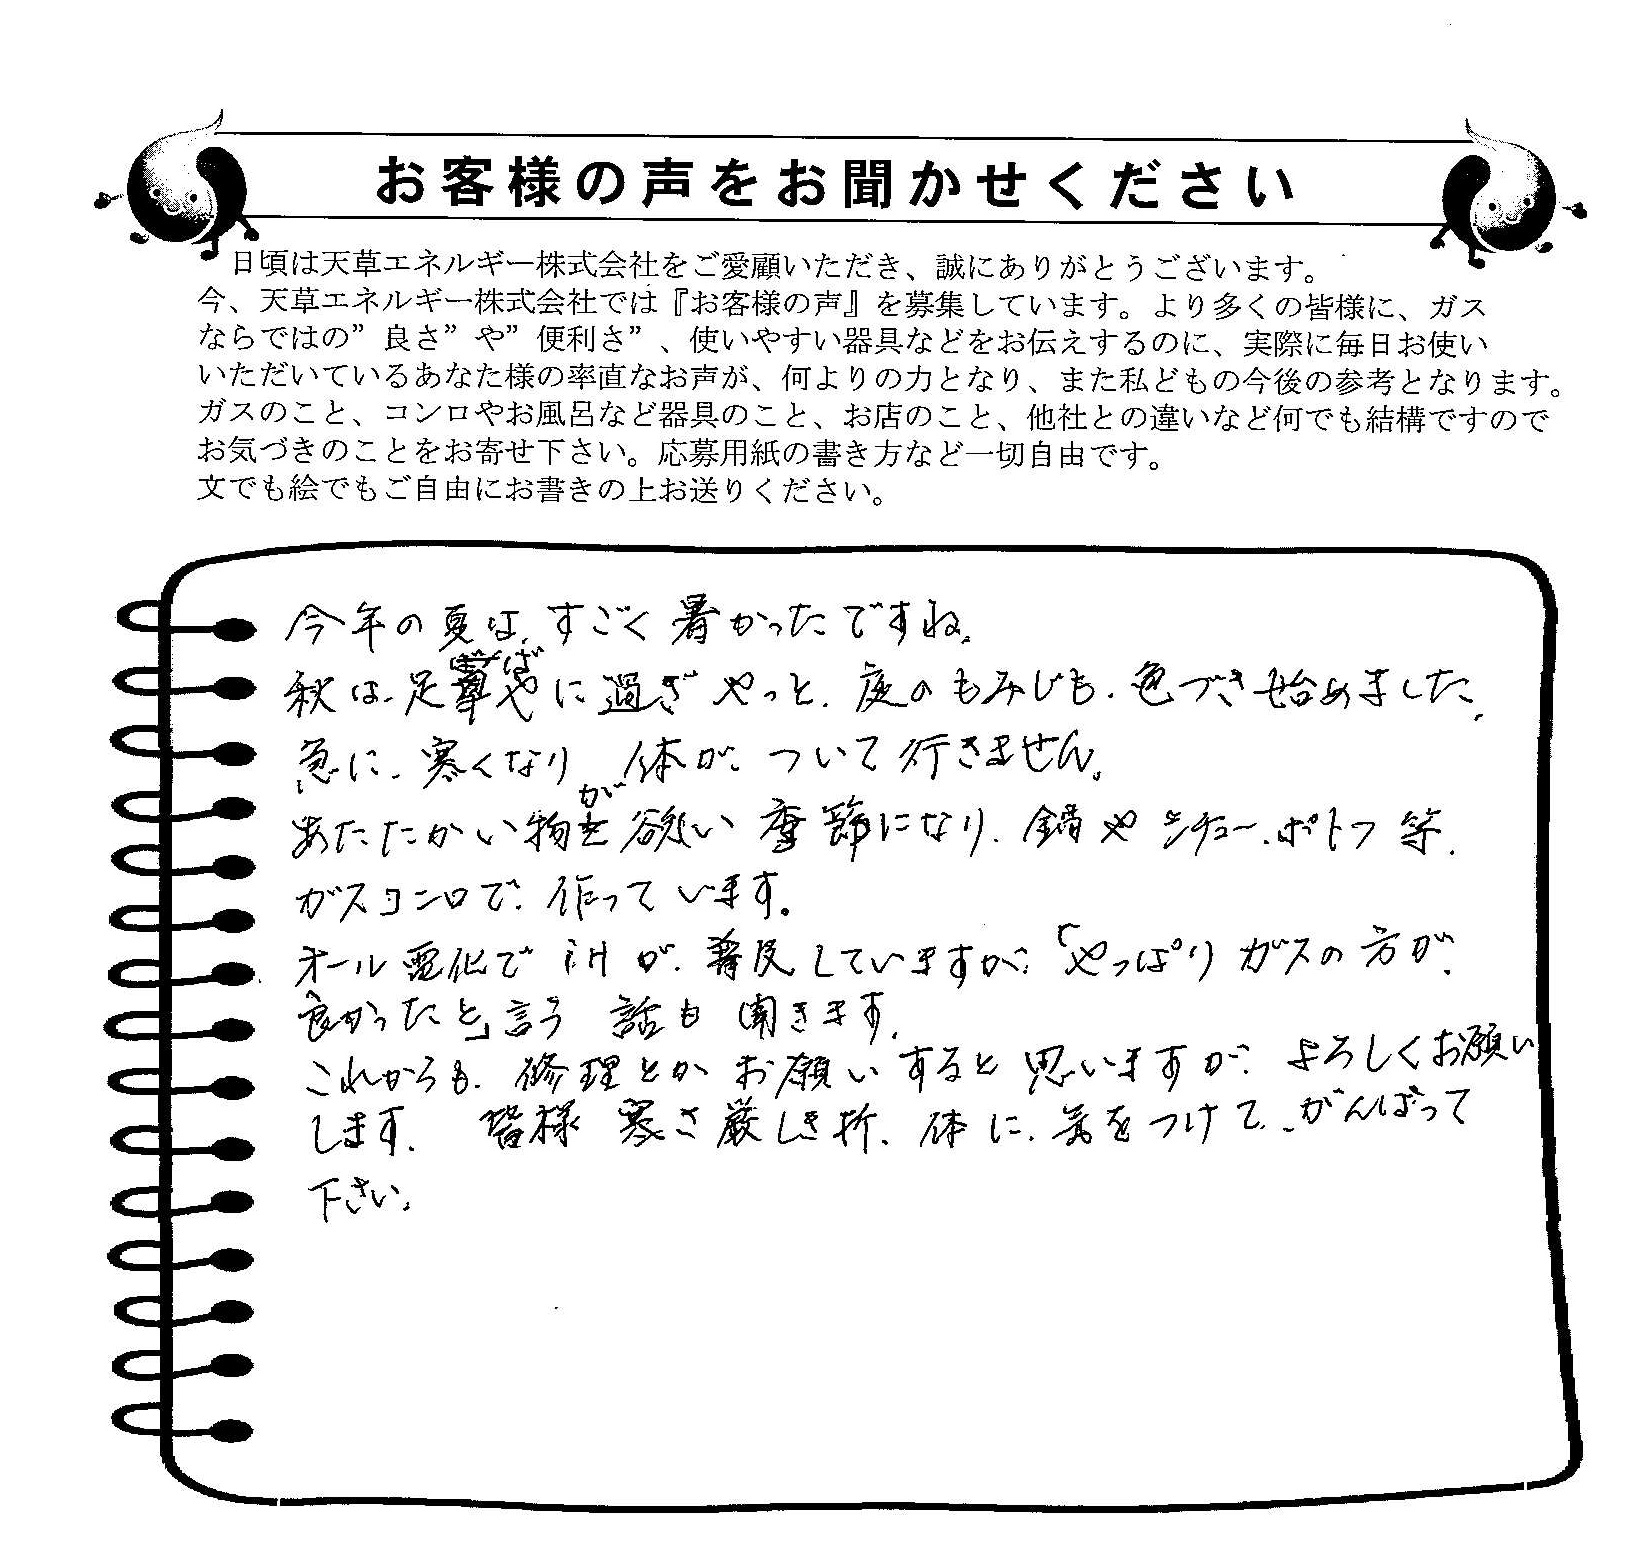 お客様の声をお聞かせください
日頃は天草エネルギー株式会社をご愛顧いただき、誠にありがとうございます。
今、天草エネルギー株式会社では『お客様の声』を募集しています。より多くの皆様に、ガス
ならではの”良さ”や”便利さ”、使いやすい器具などをお伝えするのに、実際に毎日お使い
いただいているあなた様の率直なお声が、何よりの力となり、また私どもの今後の参考となります。
ガスのこと、コンロやお風呂など器具のこと、お店のこと、他社との違いなど何でも結構ですので
お気づきのことをお寄せ下さい。応募用紙の書き方など一切自由です。
文でも絵でもご自由にお書きの上お送りください。
今年の夏は、すごく暑かったですね。
秋は、足早に過ぎやっと、庭のもみじも、色づき始めました。
急に、寒くなり、体が、ついて行きません。
あたたかい物が欲い季節になり、鍋やシチュー、ポトフ等、
ガスコンロで、作っています。
オール電化でIHが、普及していますが、「やっぱりガスの方が、
良かったと」言う話も聞きます。
これからも、修理とかお願いすると思いますが、よろしくお願い
します。皆様寒さ厳しき折、体に、気をつけて、がんばって
下さい。